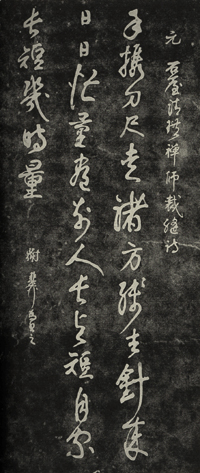 元 石屋清珙禪師裁縫詩
手携刀尺走諸方線去針來
日日忙量盡別人長與短自家
長短幾時量